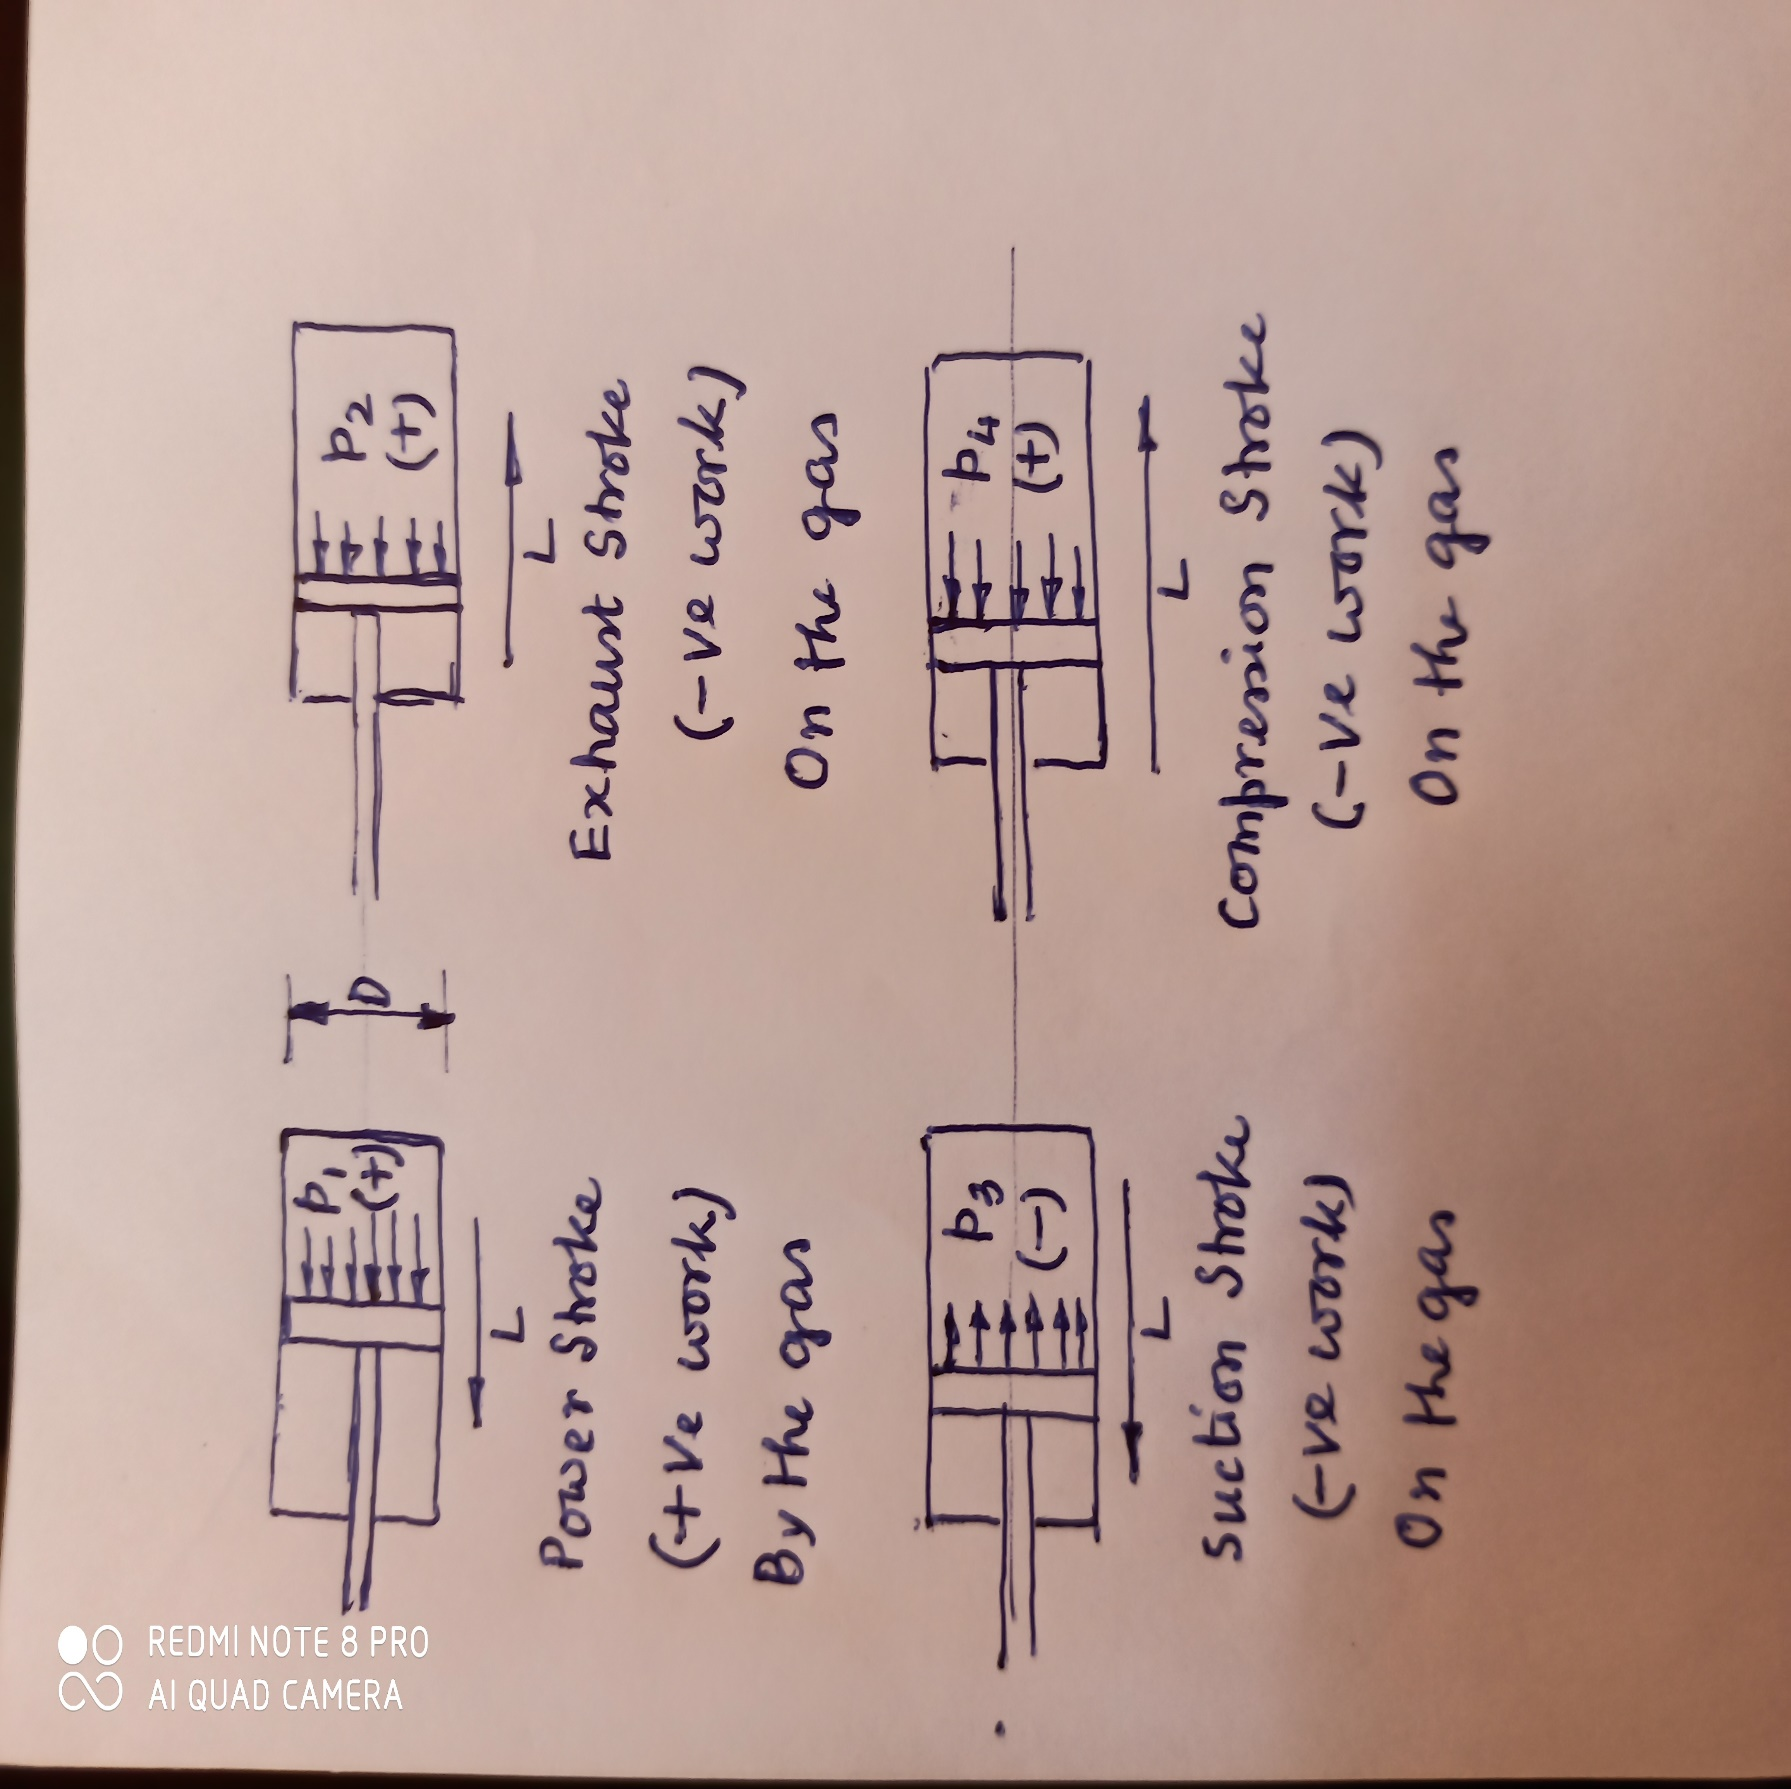 P1
(+)
L
Power Stroke
(+ve work)
By the gas
D
P2
(+)
L
Exhaust Stroke
(-ve work)
On the gas
P3
(-)
L
Suction Stroke
(-ve work)
On the gas
P4
(+)
L
Compression Stroke
(-ve work)
On the gas
REDMI NOTE 8 PRO
AI QUAD CAMERA